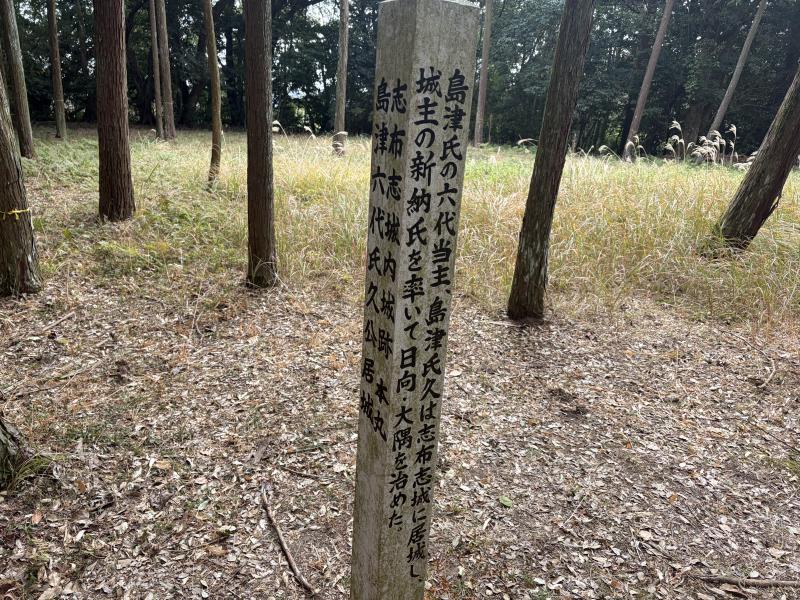 島津氏の六代当主、島津氏久は志布志城に居城し
城主の新納氏を率いて日向・大隅を治めた。
志布志城内城跡 本丸
島津六代氏久公居城